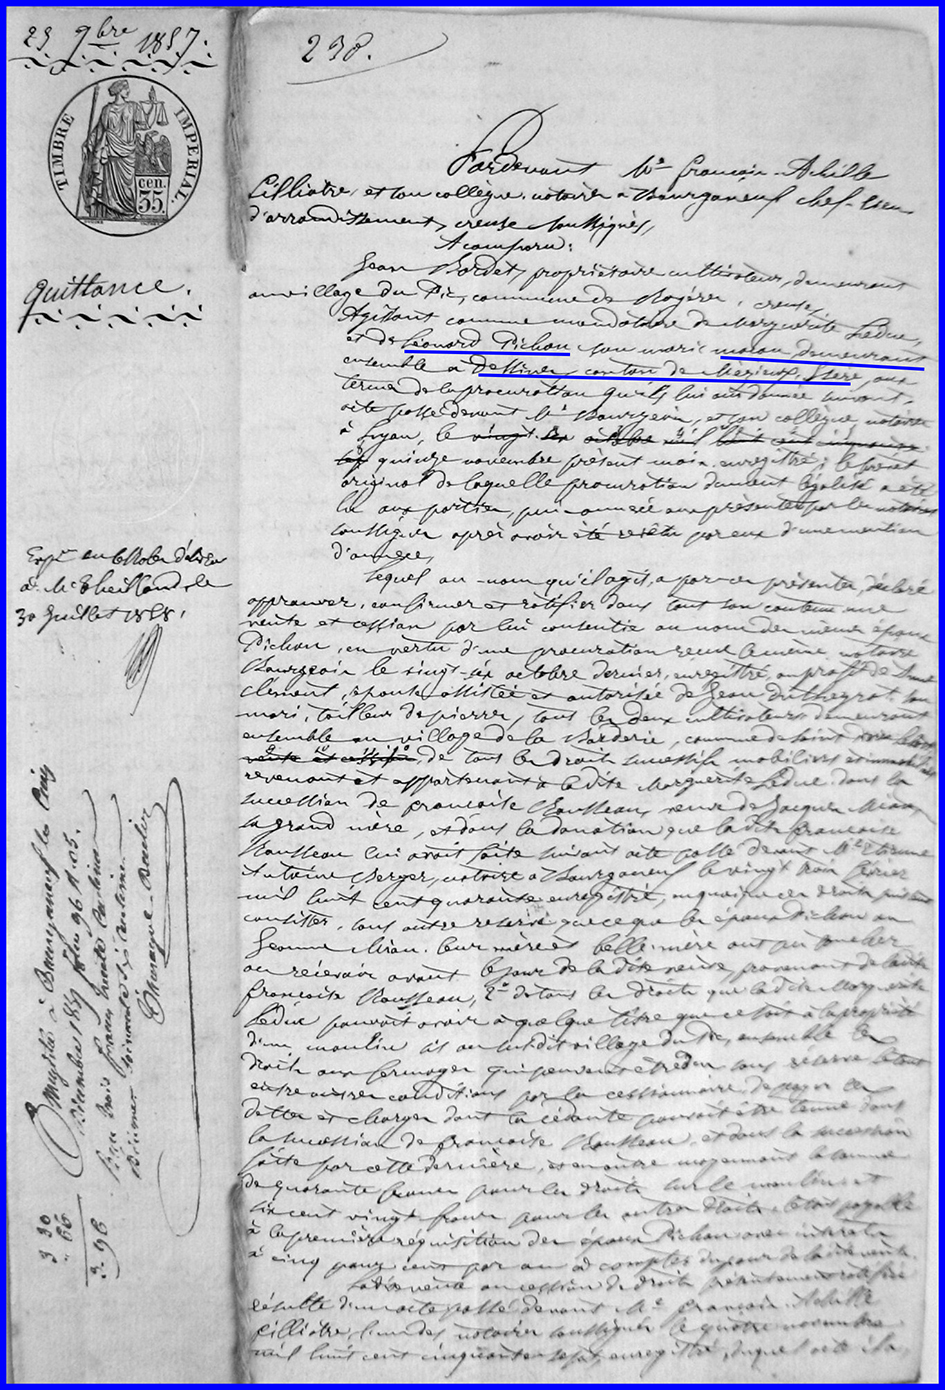 23 9bre 1857.
298.
TIMBRE IMPERIAL.
35 cen.
quittance.
Pardevant Me françois-Achille
Cilliotre, et son collègue, notaires a Bourganeuf chef-lieu
d'arrondissement, creuse soussignés,
A comparu:
Jean Bordet, propriétaire cultivateur, demeurant
au village du Pic, commune de creuse,
Agissant comme mandataire de Marguerite Leduc,
et de Léonard Pichon son mari maçon demeurant
ensemble a canton de Isère, aux
termes de la procuration qu'ils lui ont donnée suivant
acte passé devant Me Bourgeois, et son collègue, notaires
à Lyon, le vingt six octobre mil huit cent cinquante
sept quinze novembre présent mois, enregistré, le brevet
original de laquelle procuration dument légalisé a été
lu aux parties, puis annexé aux présentes par les notaires
soussignés après avoir été par eux d'une mention
d'annexe,
Lequel au nom qu'il agit, a par ces présentes, déclaré
approuver, confirmer et ratifier dans tout son contenu une
vente et cession par lui consentie au nom des mêmes époux
Pichon, en vertu d'une procuration reçue le même notaire
Bourgeois le vingt-six octobre dernier, enregistré, au profit de
clément, épouse assistée et autorisée de Jean son
mari, tailleur de pierres, tous les deux cultivateurs demeurant
ensemble au village de la commune de Saint
vente et cession de tous les droits successifs mobiliers et immobiliers
revenant et appartenant a la dite Marguerite Leduc dans la
succession de françoise Rousseau, veuve de Jacques
sa grand mère, et dans la donation que la dite françoise
Rousseau lui avait faite suivant acte passé devant Me Etienne
Antoine Berger, notaire a Bourganeuf le vingt trois février
mil huit cent quarante enregistré, en quoi que ces droits puissent
consister, sans autre réserve que ce que les époux Pichon ou
Jeanne leur mère et belle-mère ont pu toucher
ou recevoir avant le jour de la dite vente provenant de la dite
françoise Rousseau, 2° de tous les droits que la dite Marguerite
Leduc pouvait avoir a quelque titre que ce soit à la propriété
d'un moulin sis au susdit village du Pic, ensemble les
droits aux fermages qui peuvent être dus sans réserve le tout
entre autres conditions par la cessionnaire de payer les
dettes et charges dont la cédante pouvait être tenue dans
la succession de françoise Rousseau, et dans la succession
faite par cette dernière, et en outre moyennant la somme
de quarante francs pour les droits sur le moulin et
six cent vingt francs pour les autres droits, le tout payable
à la première réquisition des époux Pichon avec intérêts
à cinq pour cent par an a compter du jour de la dite vente.
La dite vente ou cession de droits présentement ratifiée
résulte d'un acte passé devant Me françois-Achille
Cilliotre, l'un des notaires soussignés le quatre novembre
mil huit cent cinquante sept, enregistré, duquel acte il a
30 Juillet 1858.
Enregistré à Bourganeuf le cinq
décembre 1857 folio 96
reçu trois francs trente centimes
décimes soixante six centimes.
3 30
" 66
3.96